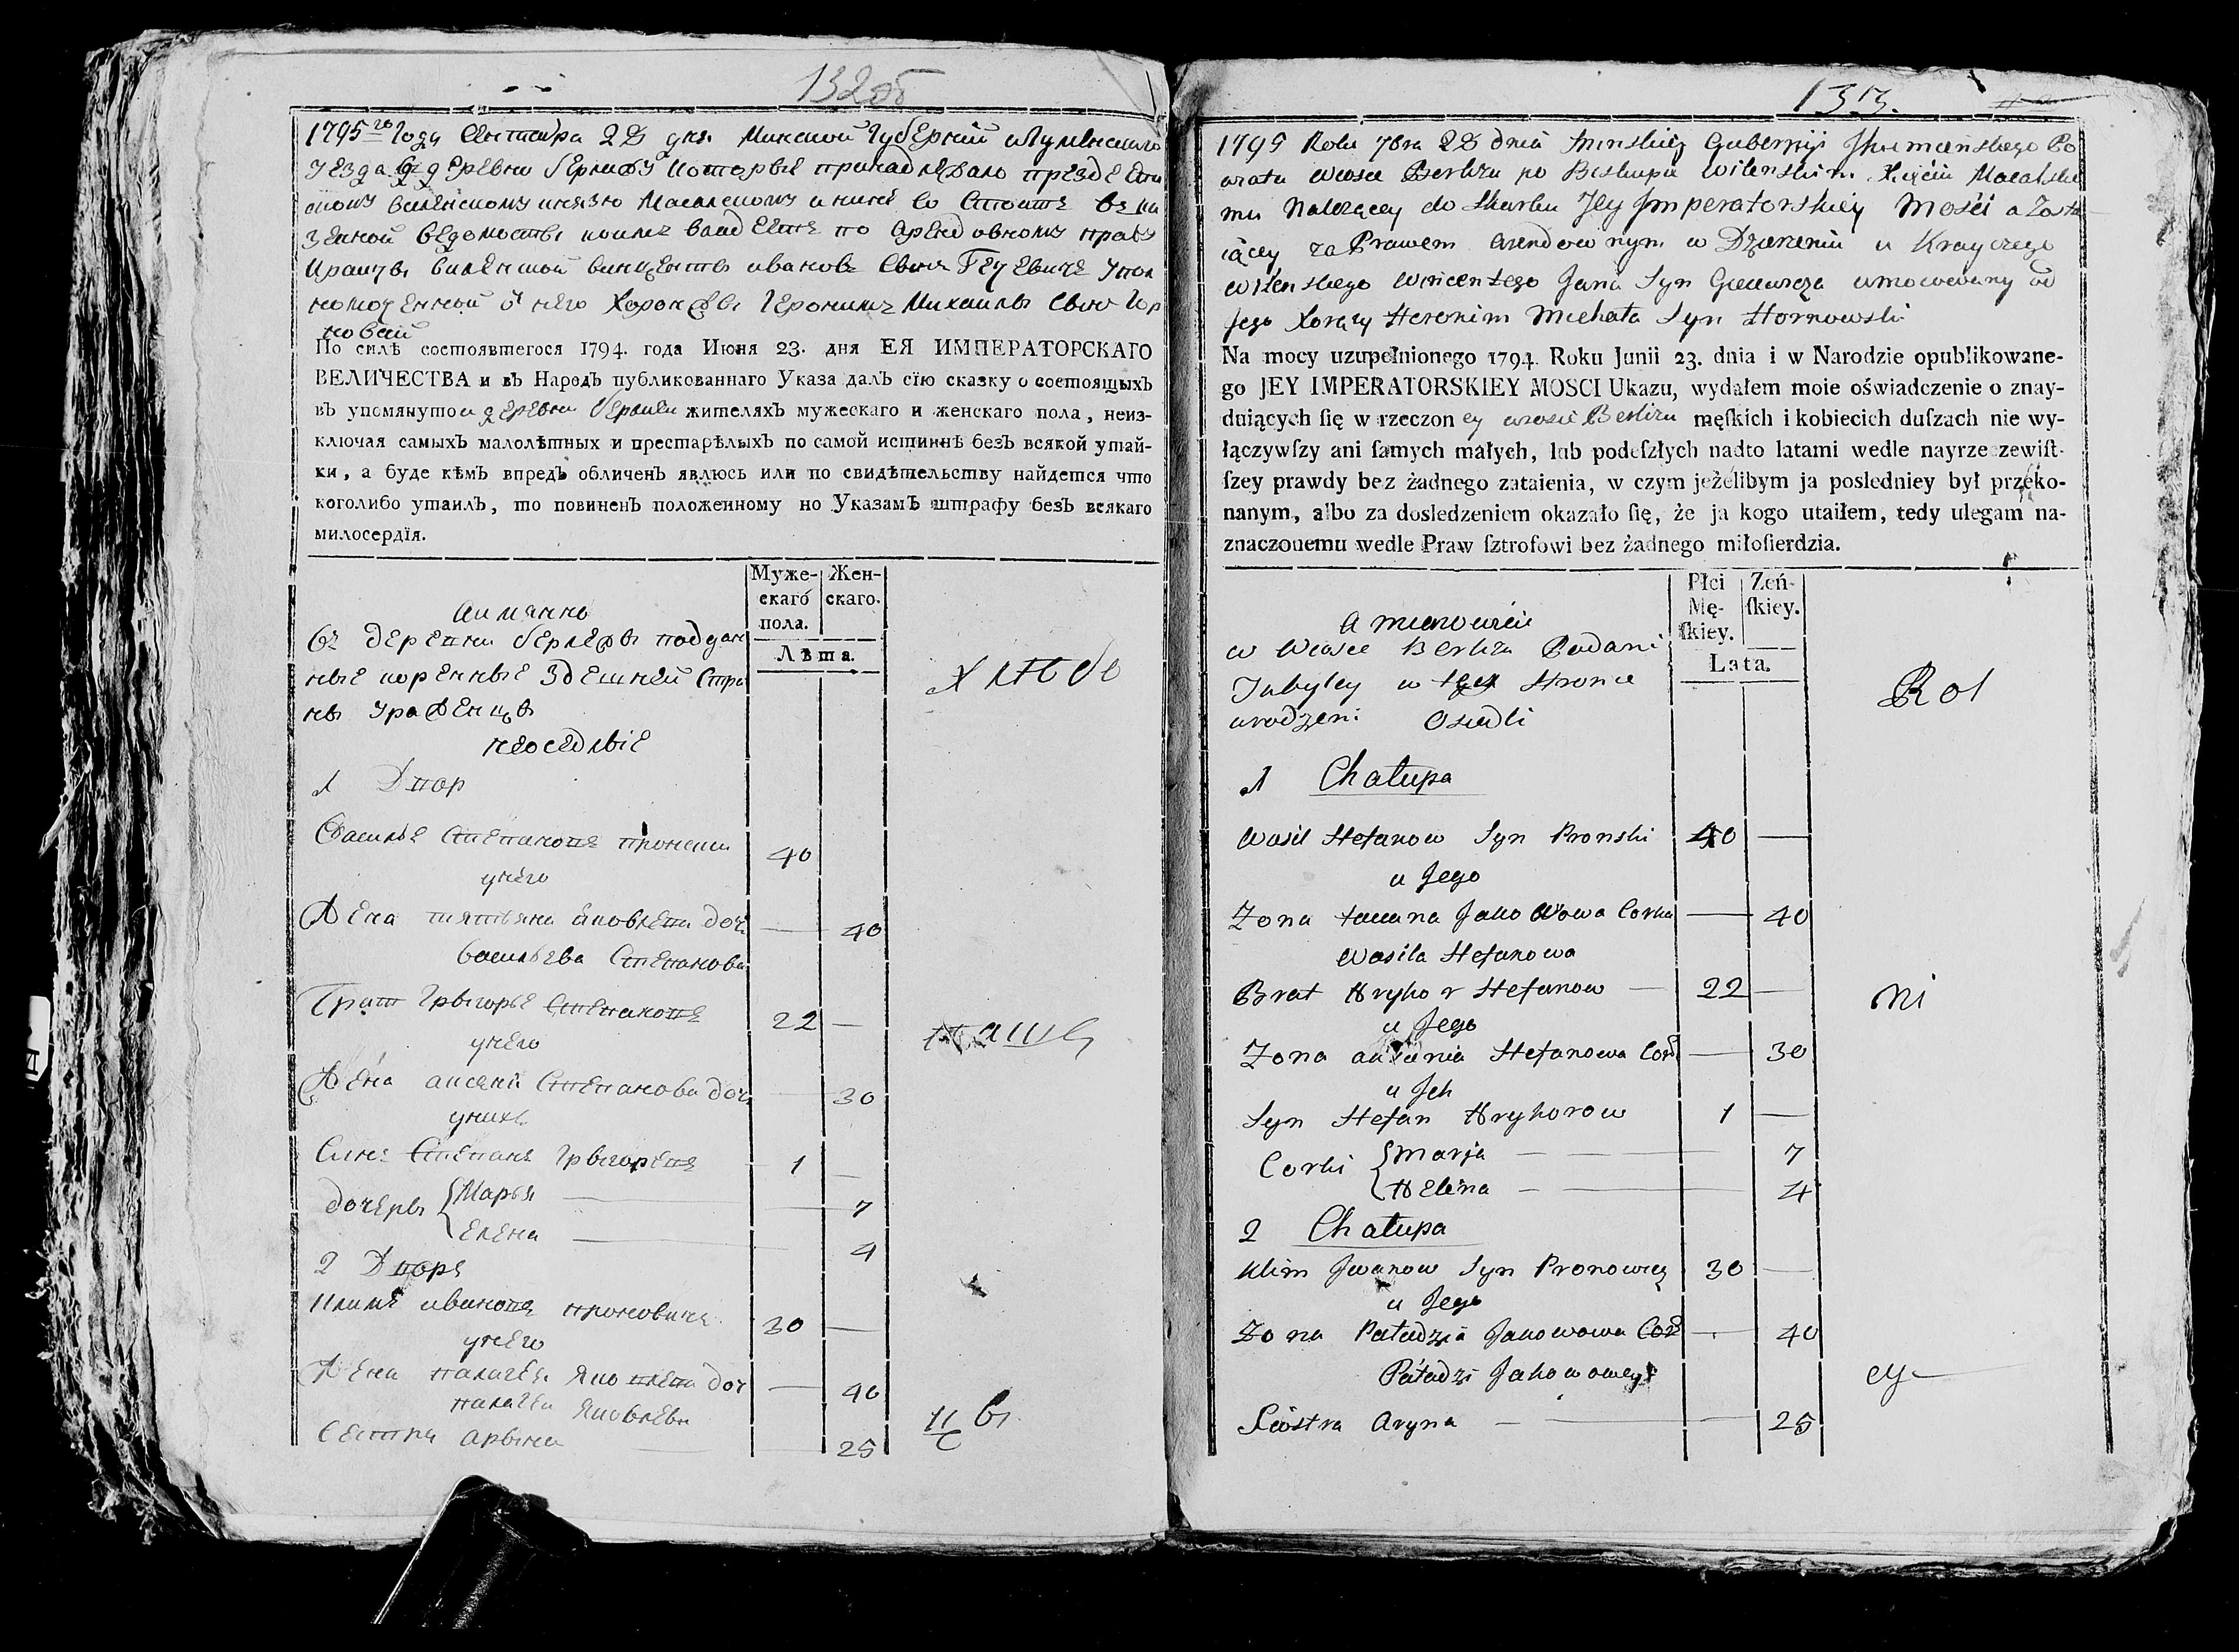 132об
1795го году Сентебра 28 дня Минской Губернии Игуменского
уезда деревни Берлижу которые принадлежало прежде епи
скопу виленскому князю Масалскому а ныне состоите в ка
зенной ведомости коими владеете по арендовному праву
Крайчы виленской Винценты Иванов сын Гецевичь упол
номоченной от него Хоронжы Героним Михаилы сын Гор
новски
По силѣ состоявшегося 1794. года Июня 23. дня ЕЯ ИМПЕРАТОРСКАГО
ВЕЛИЧЕСТВА и въ Народъ публикованнаго Указа далъ сїю сказку о состоящыхъ
въ упомянутои деревни Берлижи жителяхъ мужескаго и женскаго пола, неиз-
ключая самыхъ малолѣтныхъ и престарѣлыхъ по самой истиннѣ безъ всякой утай-
ки, а буде кѣмъ впредь обличенъ явлюсь или по свидѣтельству найдется что
коголибо утаилъ, то повиненъ положенному по Указамъ штрафу безъ всякаго
милосердїя.
Муже- Жен-
скаго скаго.
пола.
Лѣта.
а имянно
въ деревни Берлежы поддан
ные коренные здешней стра
ны уроженцы
1 Двор
Василье Степанове Пронски 40
у него
Жена Татьяна Яковлева доч — 40
Васильева Степанова
Брат Грыгорье Степанове 22 —
у него
Жена Аксеня Степанова доч — 30
у них
Сине Степане Грыгореве 1 —
Дочеры Марья — 7
Елена — 4
2 Дворе
Климе Иванове Пронович 30 —
у него
Жена Палагея Яковлева доч — 40
Палагеи Яковлевы
Сестра Арына — 25
133.
1795 Roku 7bra 28 dnia Minskiey Gubernyi Jhumeńskiego Po
wiatu wiosce Berliżu po Biskupie Wileńskim Xięciu Masalskie
mu Należącey do Skarbu Jey Jmperatorskiey Mości a Zosta
iącey za Prawem arendownym w Dzierżeniu u Krayczego
Wileńskiego Wincentego Jana Syn Giecewicza umocowany od
Jego Xorąży Heronim Michała Syn Hornowski
Na mocy uzupełnionego 1794. Roku Junii 23. dnia i w Narodzie opublikowane-
go JEY IMPERATORSKIEY MOSCI Ukazu, wydałem moie oświadczenie o znay-
duiących ſię w rzeczoney wiosce Berliżu męſkich i kobiecich duſzach nie wy-
łączywſzy ani ſamych małych, lub podeſzłych nadto latami wedle nayrzeczewiſt-
ſzey prawdy bez żadnego zataienia, w czym jeżelibym ja posledniey był przeko-
nanym, albo za dosledzeniem okazało ſię, że ja kogo utaiłem, tedy ulegam na-
znaczonemu wedle Praw ſztrofowi bez żadnego miłoſierdzia.
Płci Zeń-
Mę- ſkiey.
ſkiey.
Lata.
a mianowicie
w Wiosce Berliżu Podani
w tey Stronie
urodzeni Osiedli
Rol
1 Chałupa
Wasil Stefanow Syn Pronski 40 —
u Jego
Zona Taciana Jakowowa Corka — 40
Wasila Stefanowa
Brat Hryhor Stefanow — 22 —
ni
u Jego
Zona Axienia Stefanowa Cor — 30
u Jch
Syn Stefan Hryhorow 1 —
Corki Marja — — 7
Helena — — 4
2 Chałupa
Klim Jwanow Syn Pronowicz 30 —
u Jego
Zona Pałudzia Jakowowa Cor — 40
Pałudzi Jakowowey
cy
Siostra Aryna — — 25